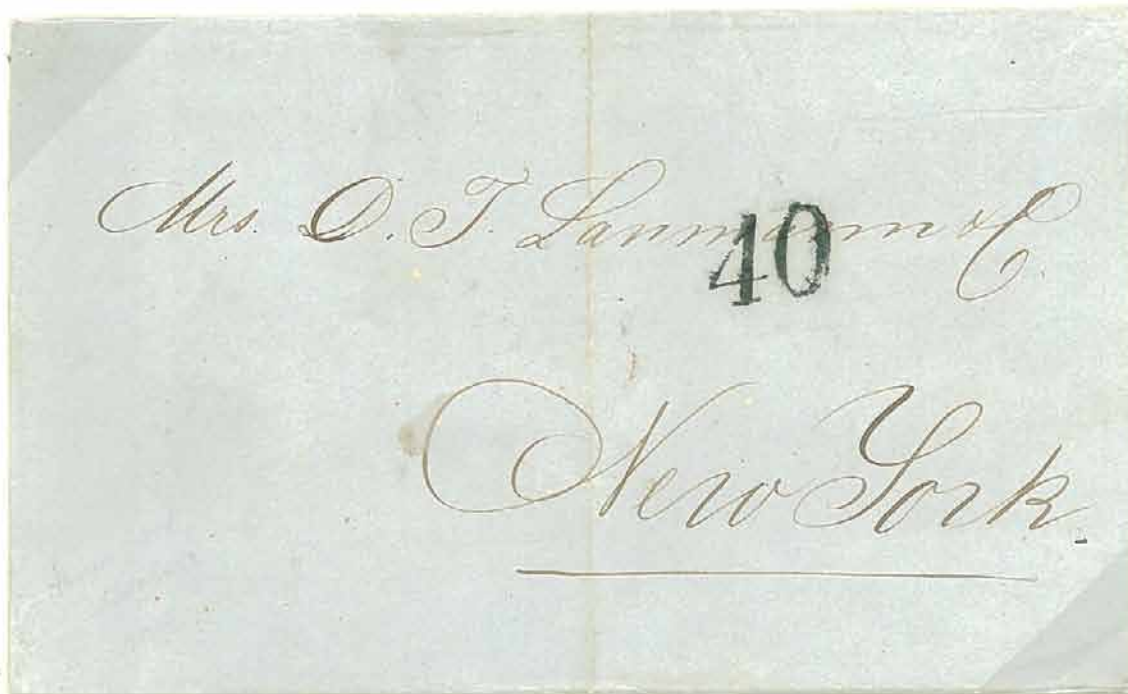 Mrs. D. T. Lanmann & C.
40
New York.